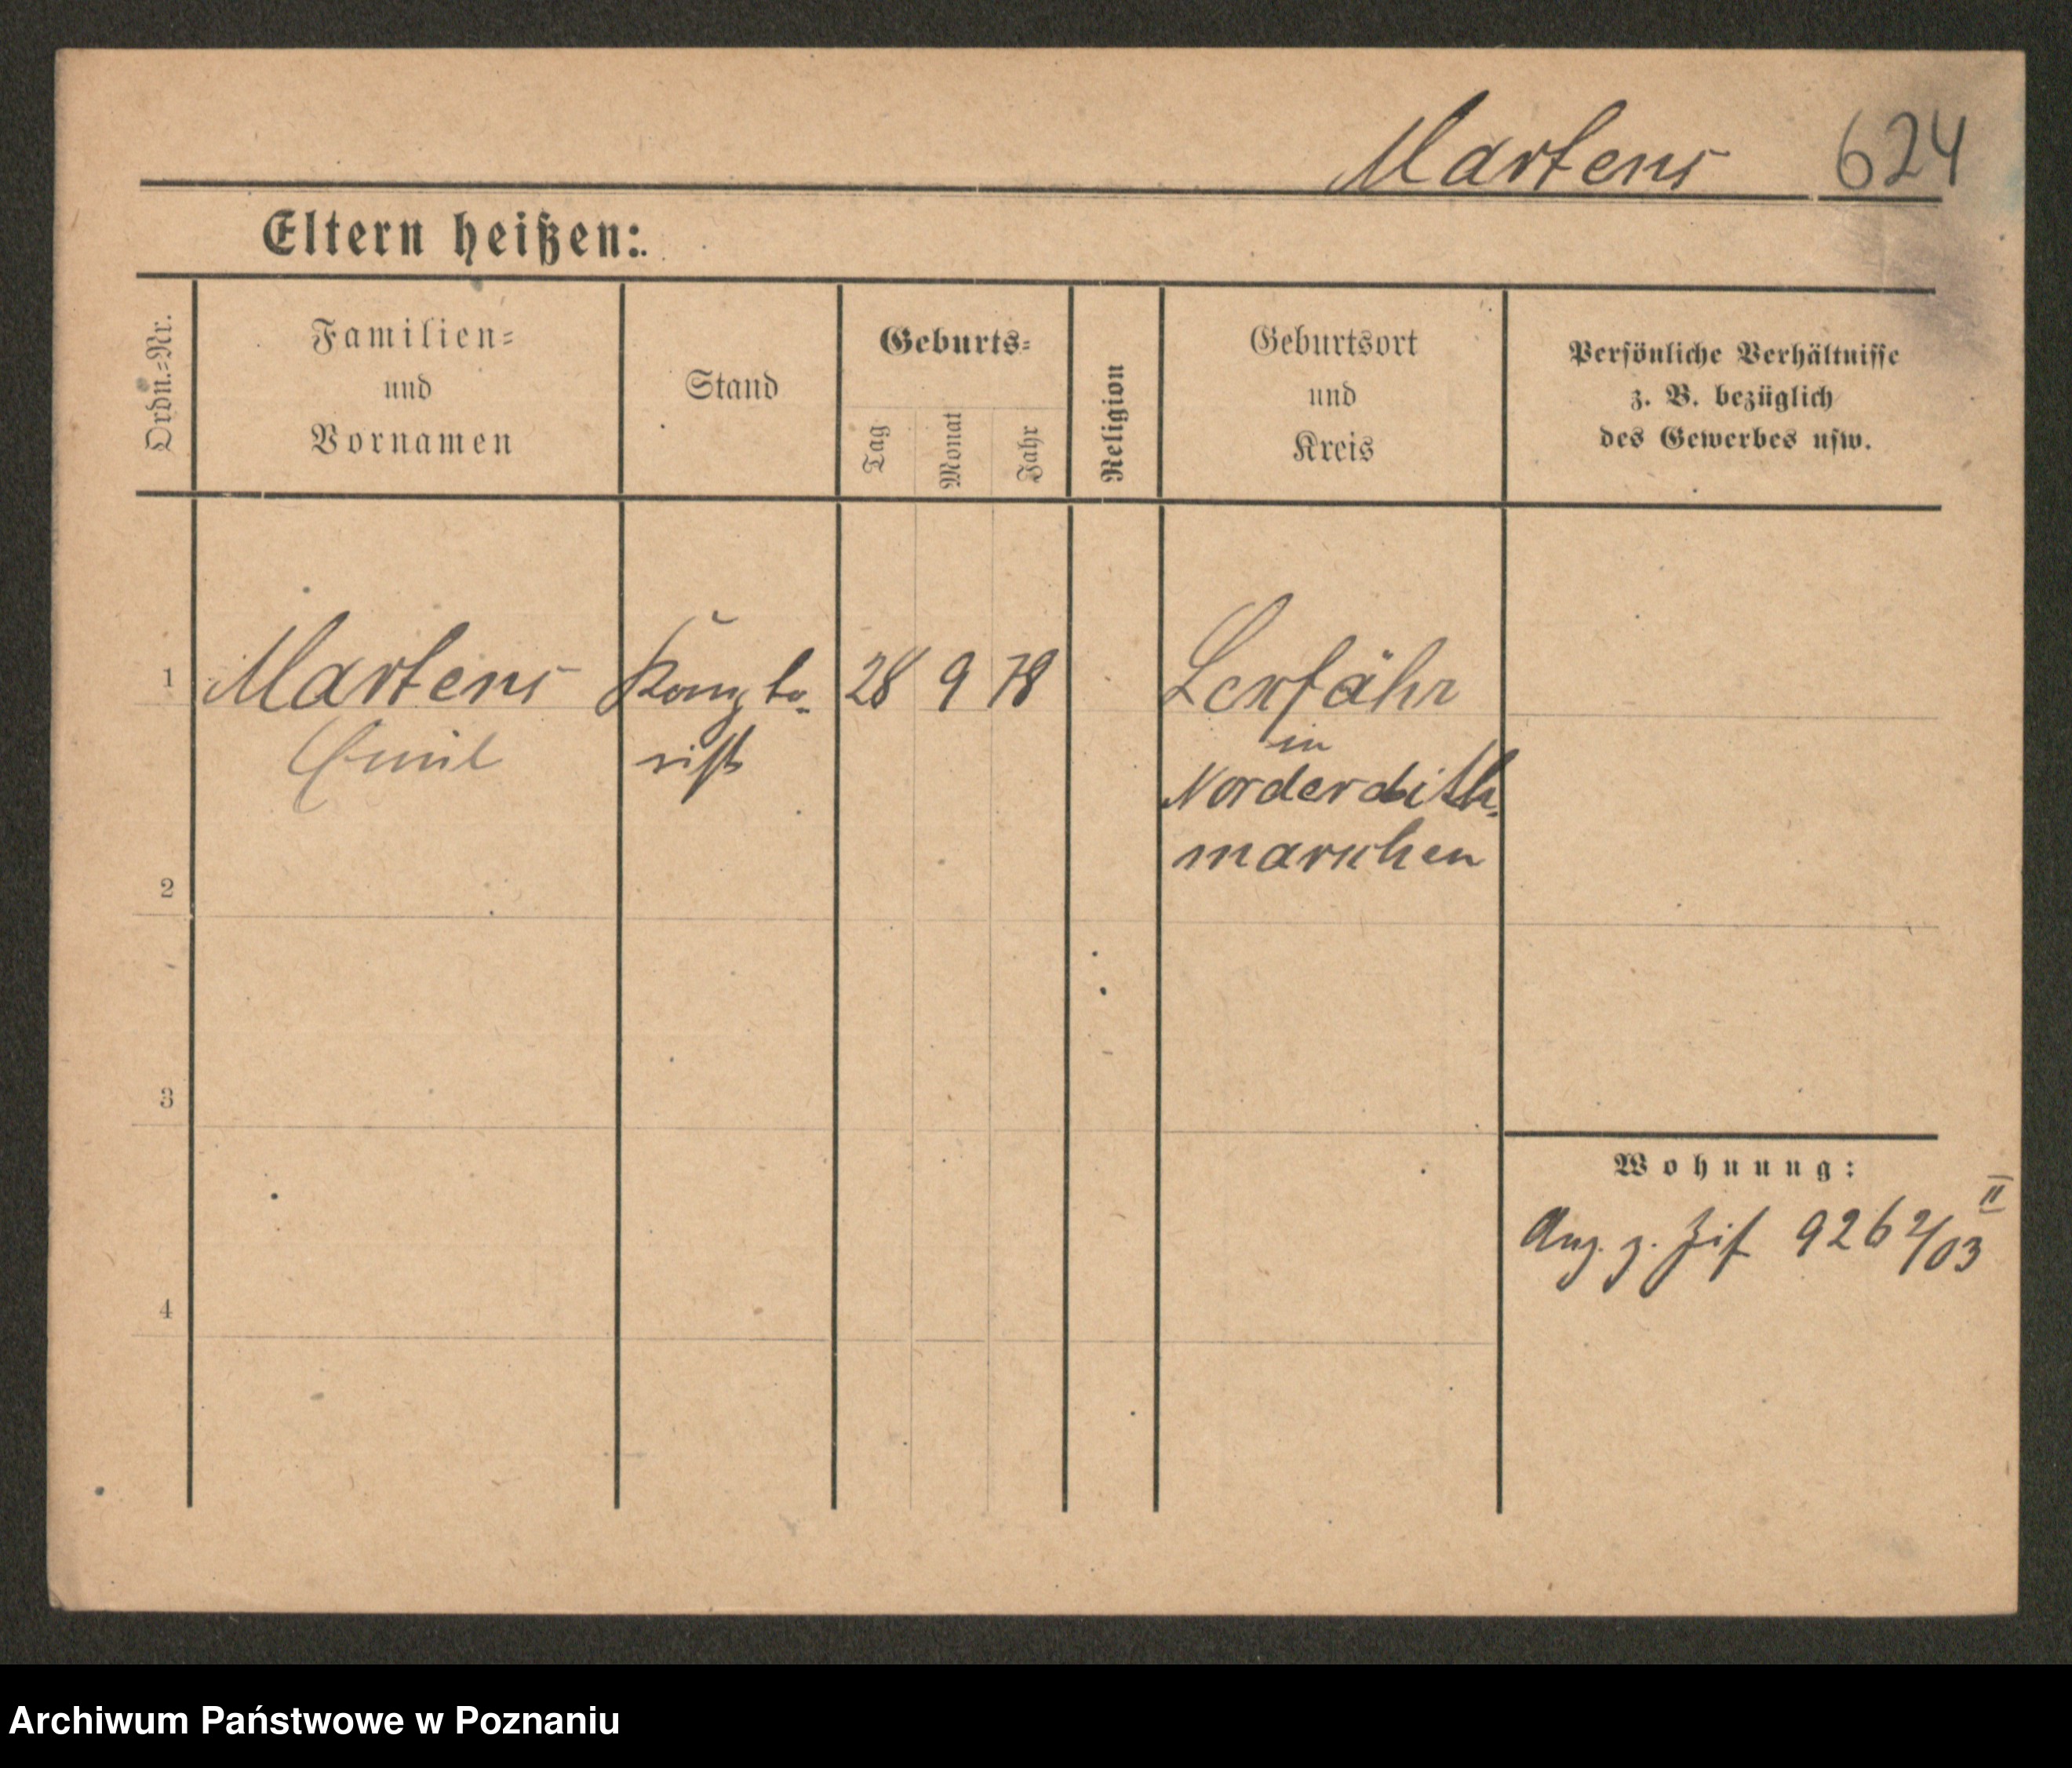 Martens 624
Eltern heißen:
Ordn.-Nr.
Familien-
und
Vornamen
Stand
Geburts-
Tag
Monat
Jahr
Religion
Geburtsort
und
Kreis
Persönliche Verhältnisse
z. B. bezüglich
des Gewerbes usw.
1 Martens 28 9 78 Lexfähr
Emil rist in
Norderdith-
marschen
2
3
Wohnung:
Anz. z. 926 2/03 II
4
Archiwum Państwowe w Poznaniu